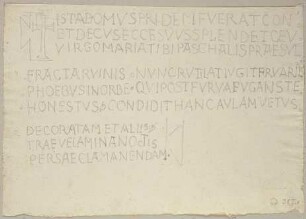 ISTADOMVSPRIDEMFVERATCON
ETDECVSECCESVVSSPLENDETCEV
VIRGOMARIATIBIPASCHALISPRAESV
FRACTARVINIS · NVNCRVTILATIVGITERVARI
PHOEBVSINORBE · QVIPOSTFVRVAFVGANSTE
HONESTVS CONDIDITHANCAVLAMVETVS
DECORATAMETALLIS
TRAEVELAMINANOCTIS
PERSAECLAMANENDAM ·